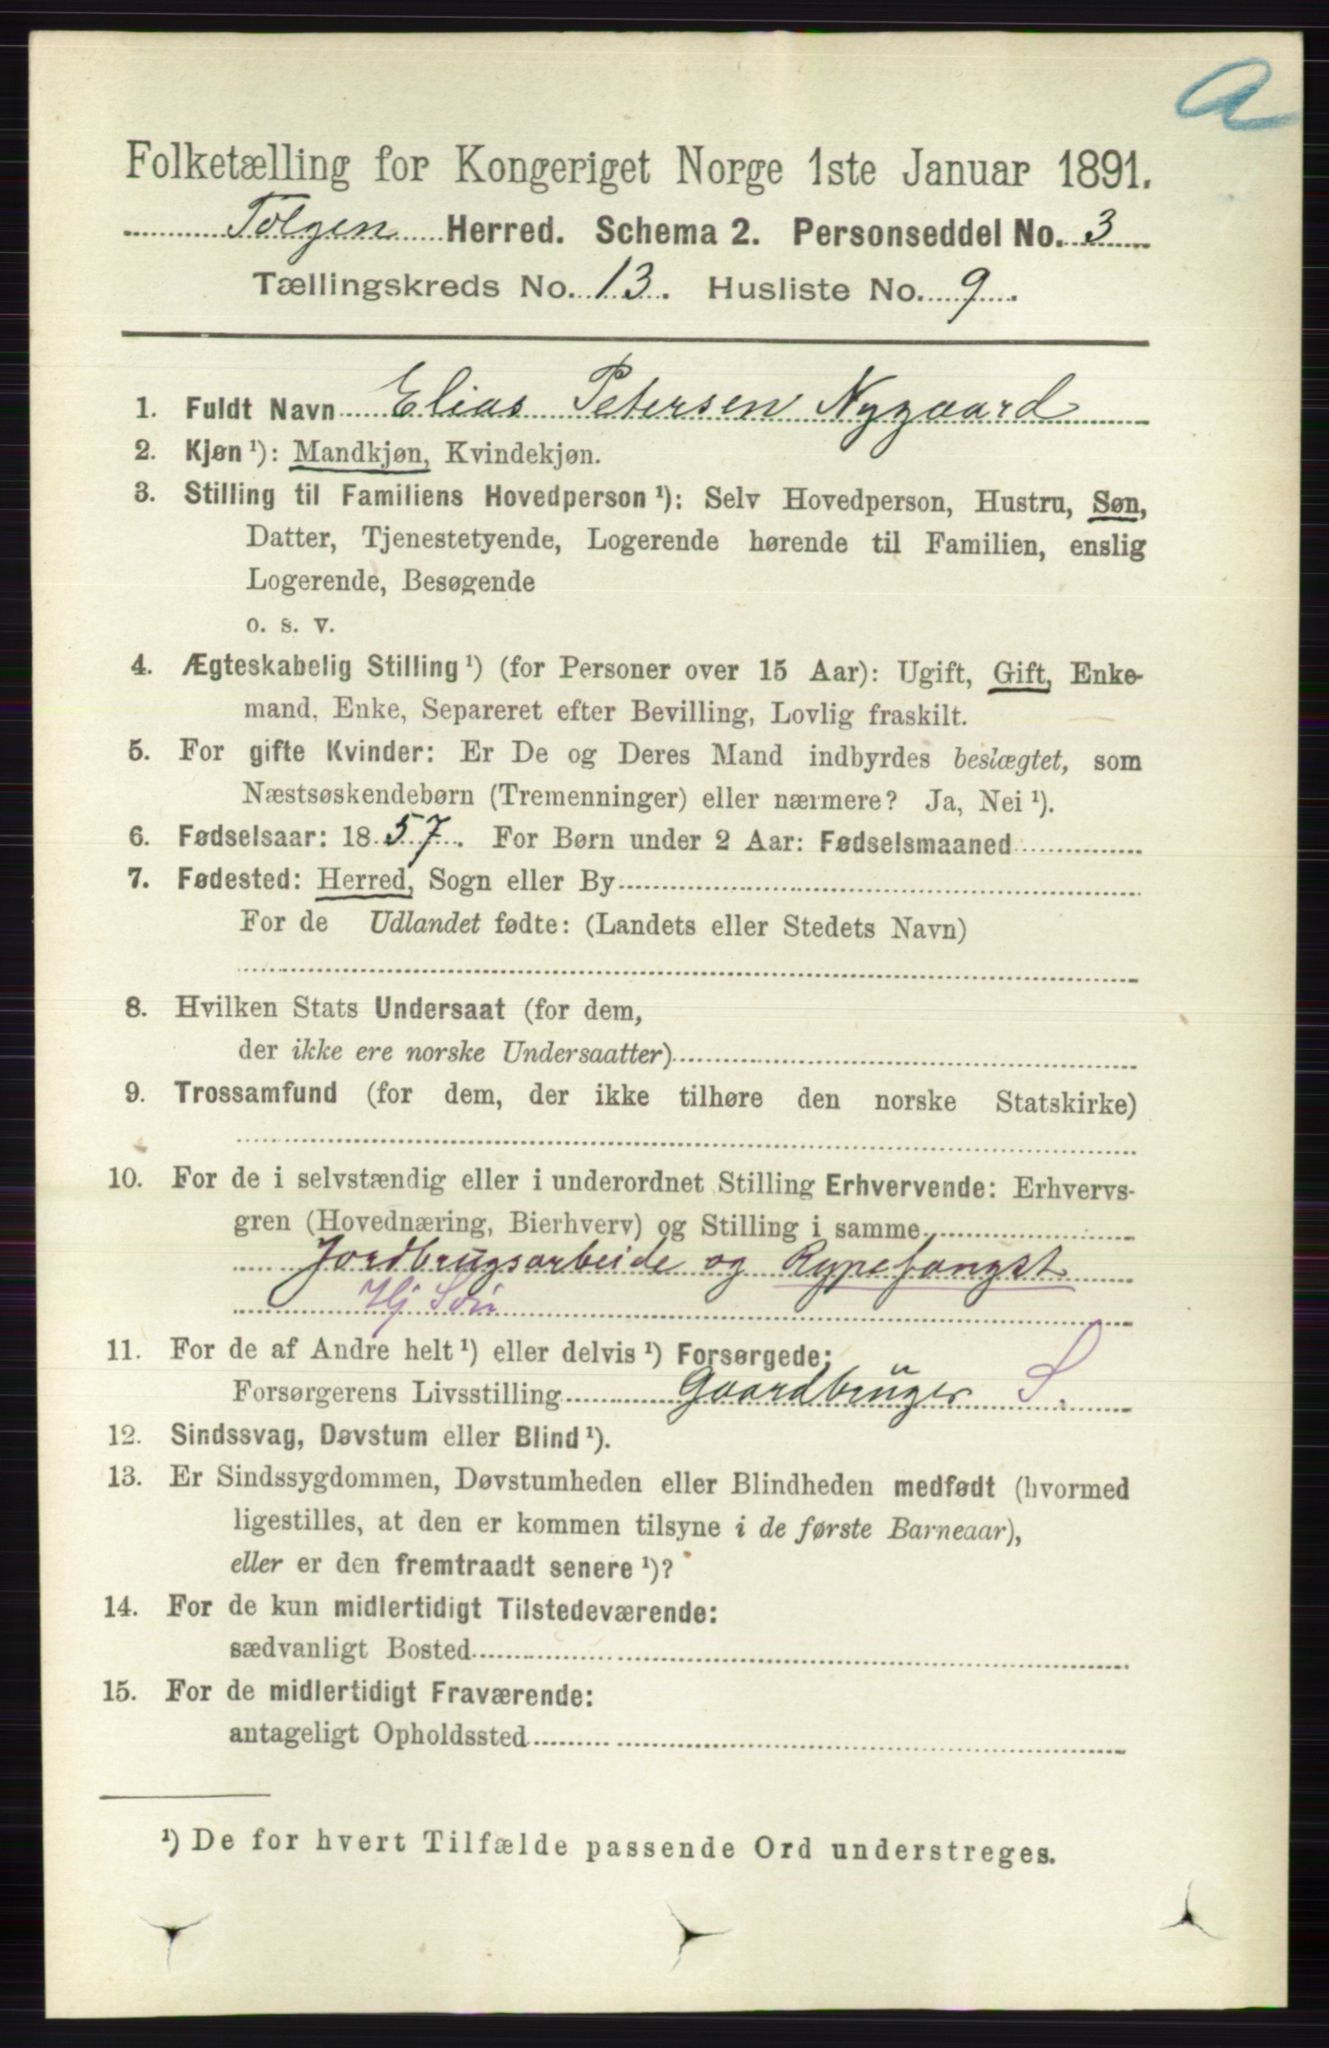 A
Folketælling for Kongeriget Norge 1ste Januar 1891.
Tolgen Herred. Schema 2. Personseddel No. 3
Tællingskreds No. 13. Husliste No. 9.
1. Fuldt Navn Elias Petersen Nygaard
2. Kjøn ¹): Mandkjøn, Kvindekjøn.
3. Stilling til Familiens Hovedperson ¹): Selv Hovedperson, Hustru, Søn,
Datter, Tjenestetyende, Logerende hørende til Familien, enslig
Logerende, Besøgende
o. s. v.
4. Ægteskabelig Stilling ¹) (for Personer over 15 Aar): Ugift, Gift, Enke-
mand, Enke, Separeret efter Bevilling, Lovlig fraskilt.
5. For gifte Kvinder: Er De og Deres Mand indbyrdes beslægtet, som
Næstsøskendebørn (Tremenninger) eller nærmere? Ja, Nei ¹).
6. Fødselsaar: 1857. For Børn under 2 Aar: Fødselsmaaned
7. Fødested: Herred, Sogn eller By
For de Udlandet fødte: (Landets eller Stedets Navn)
8. Hvilken Stats Undersaat (for dem,
der ikke ere norske Undersaatter)
9. Trossamfund (for dem, der ikke tilhøre den norske Statskirke)
10. For de i selvstændig eller i underordnet Stilling Erhvervende: Erhvervs-
gren (Hovednæring, Bierhverv) og Stilling i samme
Jordbrugsarbeide og Rypefangst
Hj Søn
11. For de af Andre helt ¹) eller delvis ¹) Forsørgede:
Forsørgerens Livsstilling Gaardbruger S.
12. Sindssvag, Døvstum eller Blind ¹).
13. Er Sindssygdommen, Døvstumheden eller Blindheden medfødt (hvormed
ligestilles, at den er kommen tilsyne i de første Barneaar),
eller er den fremtraadt senere ¹)?
14. For de kun midlertidigt Tilstedeværende:
sædvanligt Bosted
15. For de midlertidigt Fraværende:
antageligt Opholdssted
¹) De for hvert Tilfælde passende Ord understreges.